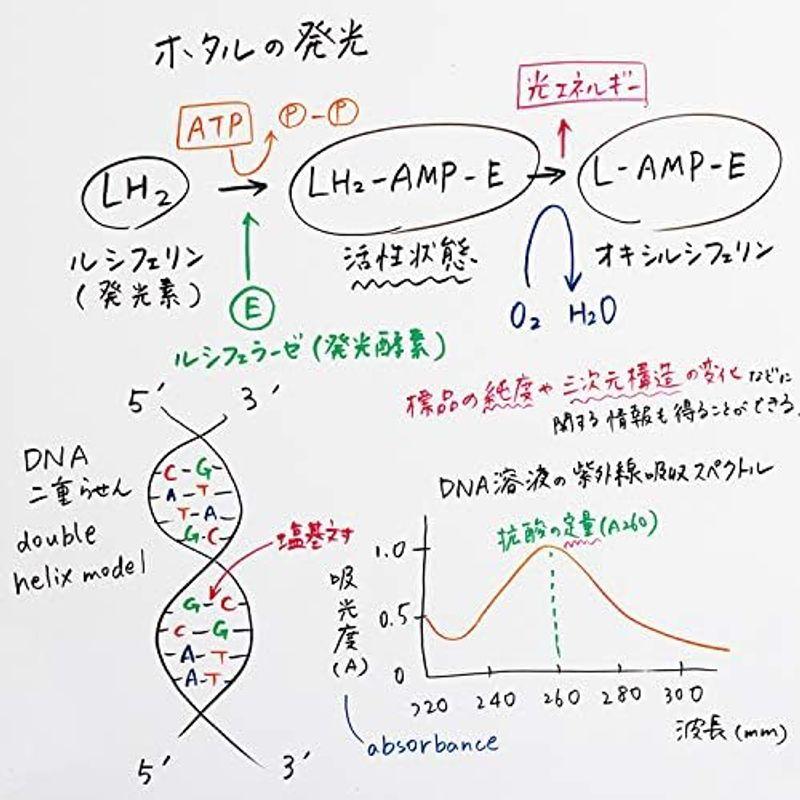 ホタルの発光
ATP
Ⓟ-Ⓟ
光エネルギー
LH₂
LH₂-AMP-E
L-AMP-E
ルシフェリン
(発光素)
活性状態
オキシルシフェリン
E
O₂ H₂O
ルシフェラーゼ(発光酵素)
標品の純度や三次元構造の変化などに
関する情報も得ることができる.
5′ 3′
DNA
二重らせん
double
helix model
C-G
A-T
T-A
G-C
塩基対
G-C
C-G
A-T
A-T
5′ 3′
DNA溶液の紫外線吸収スペクトル
抗酸の定量(A260)
1.0
0.5
0
吸光度(A)
220 240 260 280 300
波長(mm)
absorbance